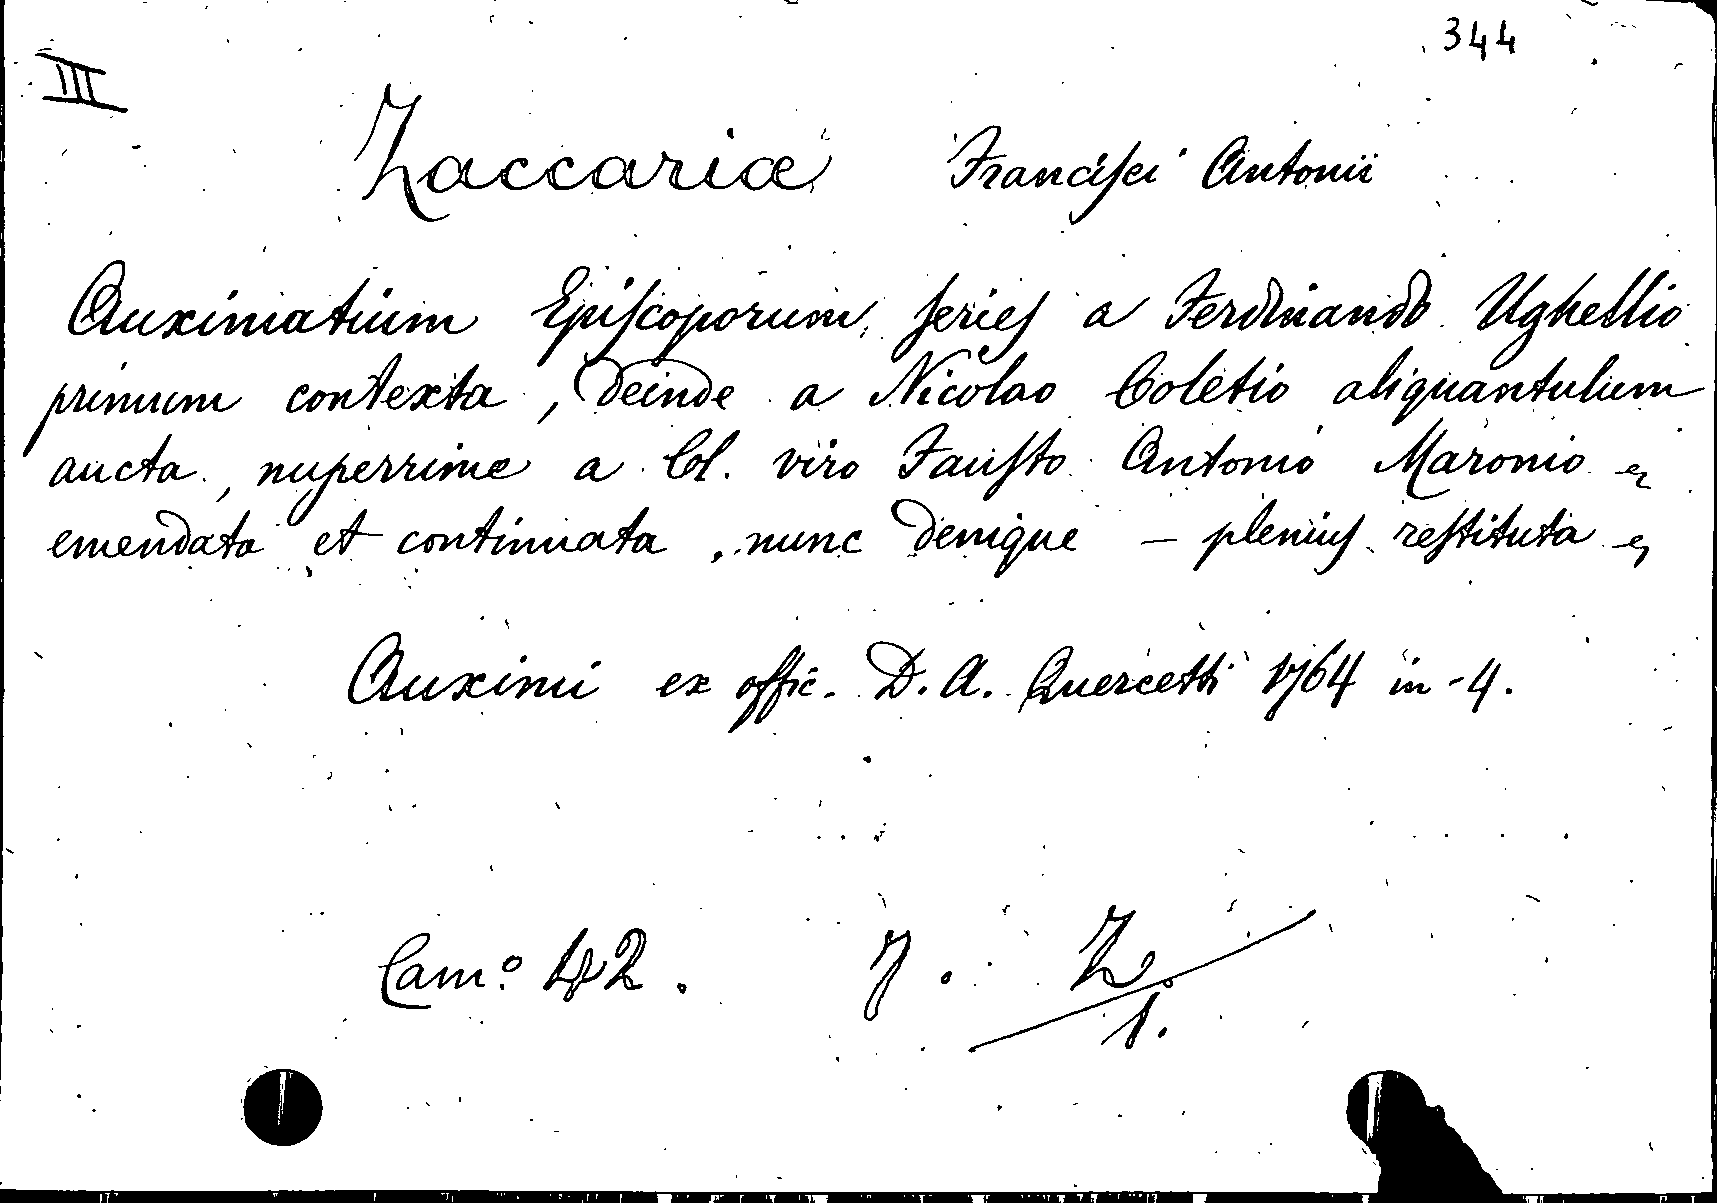 344
III
Zaccariæ Francisci Antonii
Auximatium Episcoporum series a Ferdinando Ughellio
primum contexta, deinde a Nicolao Coletio aliquantulum
aucta, nuperrime a Cl. viro Fausto Antonio Maronio
emendata et continuata, nunc denique — plenius restituta
Auximi ex offic. D. A. Quercetti 1764 in-4.
Cam.º 42. 7. Z/1.